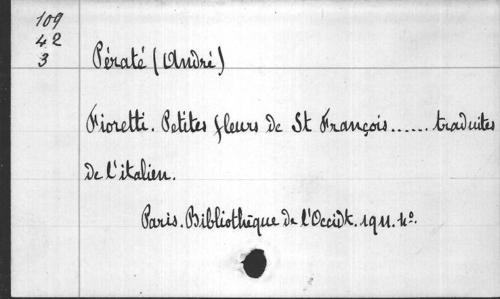 109
42
3
Pératé (André)
Fioretti. Petites fleurs de St François...... traduites
de l'italien.
Paris. Bibliothèque de l'Occidt. 1911. 4º.